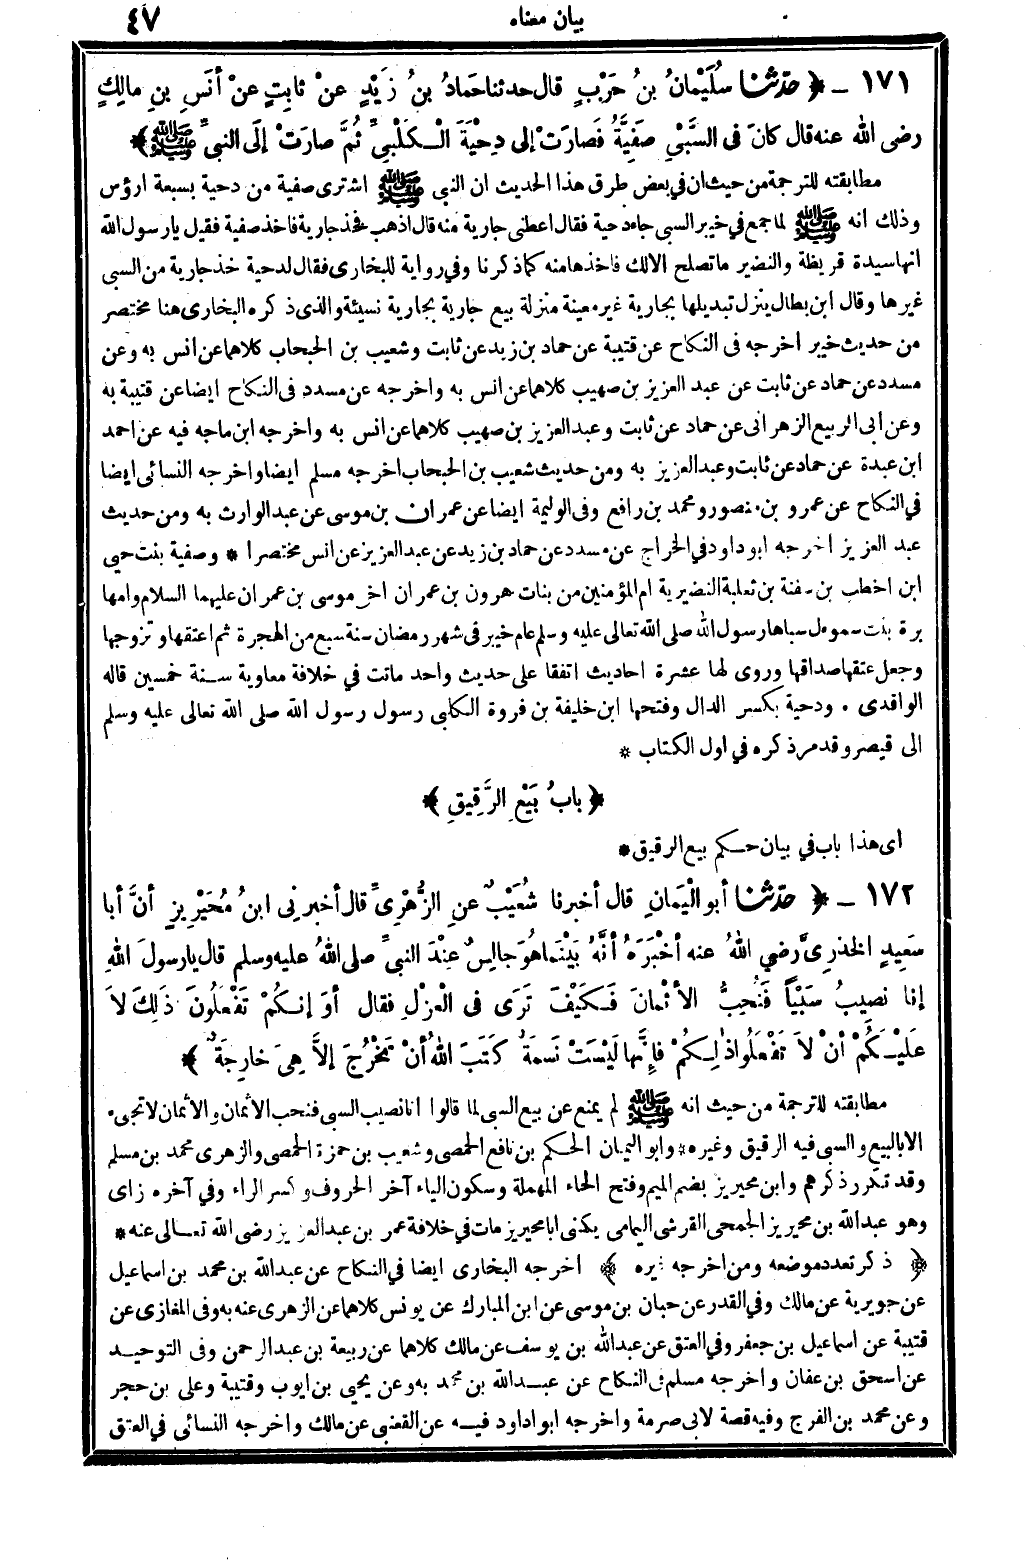 بيان معناه ٤٧
١٧١ ـ ﴿ حَدَّثَنَا سُلَيْمَانُ بنُ حَرْبٍ قال حدثنا حَمَّادُ بنُ زَيْدٍ عنْ ثابِتٍ عنْ أنَسِ بنِ مالِكٍ
رضى الله عنه قال كانَ فى السَّبْىِ صَفِيَّةُ فَصارَتْ إلى دِحْيَةَ الْكَلْبِىِّ ثُمَّ صارَتْ إلَى النبىِّ ﷺ ﴾
مطابقته للترجمة من حيث ان في بعض طرق هذا الحديث ان النبى ﷺ اشترى صفية من دحية بسبعة ارؤس
وذلك انه ﷺ لما جمع في خيبر السبى جاء دحية فقال اعطنى جارية منه قال اذهب فخذ جارية فاخذ صفية فقيل يارسول الله
انها سيدة قريظة والنضير ما تصلح الا لك فاخذها منه كما ذكرنا وفي رواية للبخارى فقال لدحية خذ جارية من السبى
غيرها وقال ابن بطال ينزل تبديلها بجارية غير معينة منزلة بيع جارية بجارية نسيئة والذى ذكره البخارى هنا مختصر
من حديث خيبر اخرجه فى النكاح عن قتيبة عن حماد بن زيد عن ثابت وشعيب بن الحبحاب كلاهما عن انس به وعن
مسدد عن حماد عن ثابت عن عبد العزيز بن صهيب كلاهما عن انس به واخرجه عن مسدد فى النكاح ايضا عن قتيبة به
وعن ابى الربيع الزهرانى عن حماد عن ثابت وعبد العزيز بن صهيب كلاهما عن انس به واخرجه ابن ماجه فيه عن احمد
ابن عبدة عن حماد عن ثابت وعبد العزيز به ومن حديث شعيب بن الحبحاب اخرجه مسلم ايضا واخرجه النسائى ايضا
في النكاح عن عمرو بن منصور ومحمد بن رافع وفى الوليمة ايضا عن عمران بن موسى عن عبد الوارث به ومن حديث
عبد العزيز اخرجه ابو داود في الخراج عن مسدد عن حماد بن زيد عن عبد العزيز عن انس مختصرا * وصفية بنت حيى
ابن اخطب بن سفنة بن ثعلبة النضيرية ام المؤمنين من بنات هرون بن عمران اخى موسى بن عمران عليهما السلام وامها
برة بنت سموءل سباها رسول الله صلى الله تعالى عليه وسلم عام خيبر فى شهر رمضان سنة سبع من الهجرة ثم اعتقها وتزوجها
وجعل عتقها صداقها وروى لها عشرة احاديث اتفقا على حديث واحد ماتت في خلافة معاوية سنة خمسين قاله
الواقدى . ودحية بكسر الدال وفتحها ابن خليفة بن فروة الكلبى رسول رسول الله صلى الله تعالى عليه وسلم
الى قيصر وقد مر ذكره في اول الكتاب *
﴿ بابُ بَيْعِ الرَّقِيقِ ﴾
اى هذا باب في بيان حكم بيع الرقيق *
١٧٢ ـ ﴿ حَدَّثَنَا أبو الْيَمانِ قال أخبرنا شُعَيْبٌ عنِ الزُّهْرِىِّ قال أخبرنى ابنُ مُحَيْرِيزٍ أنَّ أبا
سَعِيدٍ الخدْرِىَّ رضي اللهُ عنه أخْبَرَهُ أنَّهُ بَيْنَما هُوَ جالِسٌ عِنْدَ النبىِّ صلى اللهُ عليه وسلم قال يارسولَ اللهِ
إنا نصِيبُ سَبْيًا فَنُحِبُّ الأثْمانَ فَكَيْفَ تَرَى فى الْعزْلِ فقال أوَ إنكُمْ تَفْعَلُونَ ذَلِكَ لاَ
عَلَيْكُمْ أنْ لاَ تَفْعَلُوا ذٰلِكُمْ فإنَّها لَيْسَتْ نَسمَةٌ كَتَبَ اللهُ أنْ تَخْرُجَ إلاَّ هِىَ خارِجَةٌ ﴾
مطابقته للترجمة من حيث انه ﷺ لم يمنع عن بيع السبى لما قالوا انا نصيب السبى فنحب الأثمان والأثمان لا تجىء
الا بالبيع والسبى فيه الرقيق وغيره * وابو اليمان الحكم بن نافع الحمصى وشعيب بن حمزة الحمصى والزهرى محمد بن مسلم
وقد تكرر ذكرهم وابن محيريز بضم الميم وفتح الحاء المهملة وسكون الياء آخر الحروف وكسر الراء وفي آخره زاى
وهو عبد الله بن محيريز الجمحى القرشى اليمامى يكنى ابا محيريز مات في خلافة عمر بن عبد العزيز رضى الله تعالى عنه *
﴿ ذكر تعدد موضعه ومن اخرجه غيره ﴾ اخرجه البخارى ايضا في النكاح عن عبد الله بن محمد بن اسماعيل
عن جويرية عن مالك وفي القدر عن حبان بن موسى عن ابن المبارك عن يونس كلاهما عن الزهرى عنه به وفى المغازى عن
قتيبة عن اسماعيل بن جعفر وفي العتق عن عبد الله بن يوسف عن مالك كلاهما عن ربيعة بن عبد الرحمن وفى التوحيد
عن اسحق بن عفان واخرجه مسلم فى النكاح عن عبد الله بن محمد به وعن يحيى بن ايوب وقتيبة وعلى بن حجر
وعن محمد بن الفرج وفيه قصة لابى صرمة واخرجه ابو داود فيه عن القعنبى عن مالك واخرجه النسائى في العتق